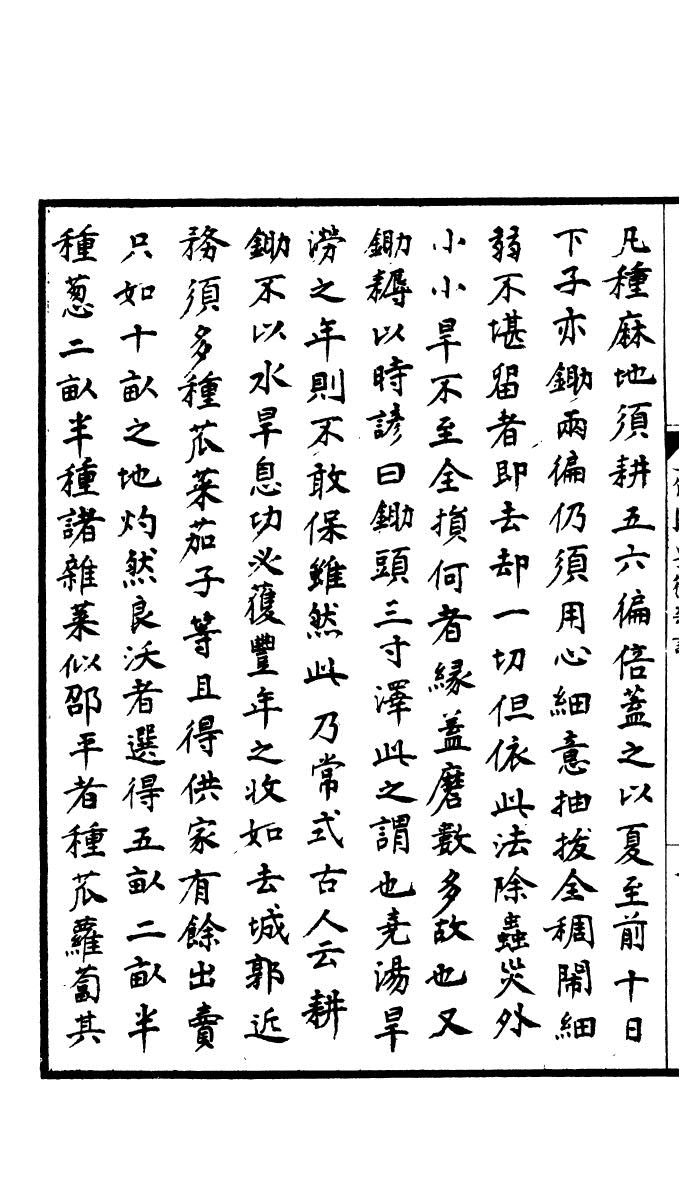 凡種麻地須耕五六徧倍蓋之以夏至前十日
下子亦鋤兩徧仍須用心細意抽拔全稠閙細
弱不堪留者即去却一切但依此法除蟲災外
小小旱不至全損何者縁蓋磨數多故也又
鋤耨以時諺曰鋤頭三寸澤此之謂也堯湯旱
澇之年則不敢保雖然此乃常式古人云耕
鋤不以水旱息功必獲豐年之收如去城郭近
務須多種苽菜茄子等且得供家有餘出賣
只如十畝之地灼然良沃者選得五畝二畝半
種葱二畝半種諸雜菜似邵平者種苽蘿蔔其